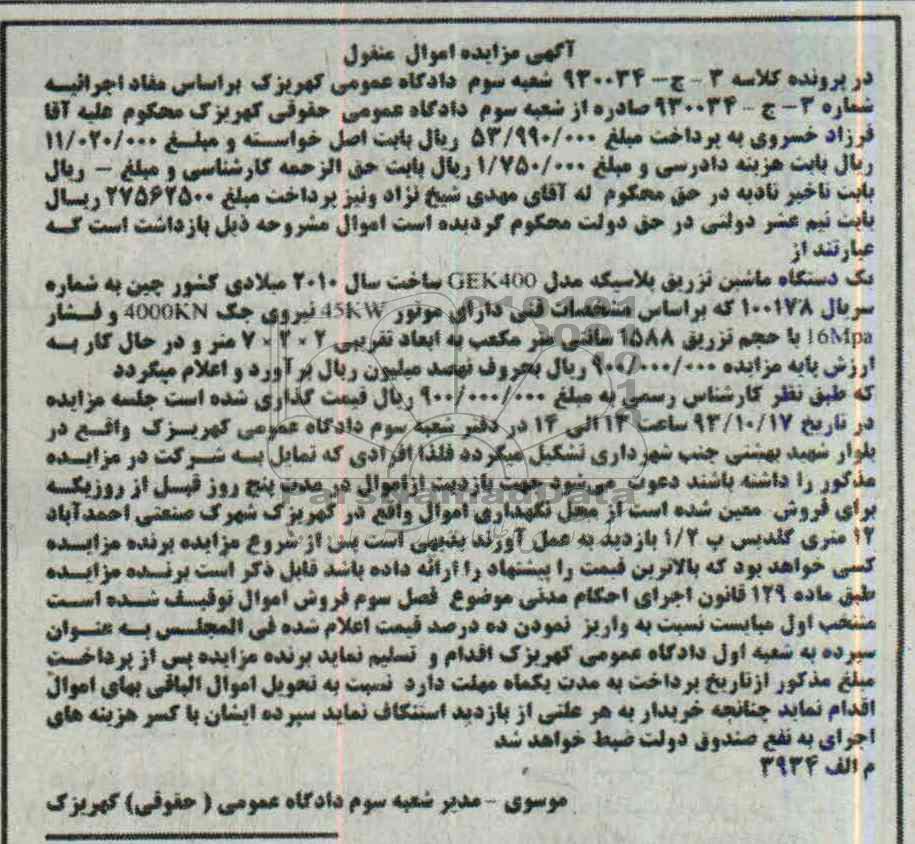 آگهی مزایده اموال منقول
در پرونده کلاسه ۳ - ج - ۹۳۰۰۳۴ شعبه سوم دادگاه عمومی کهریزک براساس مفاد اجرائیه
شماره ۳ - ج - ۹۳۰۰۳۴ صادره از شعبه سوم دادگاه عمومی حقوقی کهریزک محکوم علیه آقا
فرزاد خسروی به پرداخت مبلغ ۵۳/۹۹۰/۰۰۰ ریال بابت اصل خواسته و مبلغ ۱۱/۰۲۰/۰۰۰
ریال بابت هزینه دادرسی و مبلغ ۱/۷۵۰/۰۰۰ ریال بابت حق الزحمه کارشناسی و مبلغ - ریال
بابت تاخیر تادیه در حق محکوم له آقای مهدی شیخ نژاد ونیز پرداخت مبلغ ۲۷۵۶۲۵۰۰ ریال
بابت نیم عشر دولتی در حق دولت محکوم گردیده است اموال مشروحه ذیل بازداشت است که
عبارتند از
یک دستگاه ماشین تزریق پلاسیکه مدل GEK400 ساخت سال ۲۰۱۰ میلادی کشور چین به شماره
سریال ۱۰۰۱۷۸ که براساس مشخصات فنی دارای موتور 45KW نیروی جک 4000KN و فشار
16Mpa با حجم تزریق ۱۵۸۸ سانتی متر مکعب به ابعاد تقریبی ۲ × ۲ × ۷ متر و در حال کار به
ارزش پایه مزایده ۹۰۰/۰۰۰/۰۰۰ ریال بحروف نهصد میلیون ریال برآورد و اعلام میگردد
که طبق نظر کارشناس رسمی به مبلغ ۹۰۰/۰۰۰/۰۰۰ ریال قیمت گذاری شده است جلسه مزایده
در تاریخ ۹۳/۱۰/۱۷ ساعت ۱۳ الی ۱۴ در دفتر شعبه سوم دادگاه عمومی کهریزک واقع در
بلوار شهید بهشتی جنب شهرداری تشکیل میگردد فلذا افرادی که تمایل به شرکت در مزایده
مذکور را داشته باشند دعوت میشود جهت بازدیت ازاموال در مدت پنج روز قبل از روزیکه
برای فروش معین شده است از محل نگهداری اموال واقع در کهریزک شهرک صنعتی احمدآباد
۱۲ متری گلدیس پ ۱/۲ بازدید به عمل آورند بدیهی است پس از شروع مزایده برنده مزایده
کسی خواهد بود که بالاترین قیمت را پیشنهاد را ارائه داده باشد قابل ذکر است برنده مزایده
طبق ماده ۱۲۹ قانون اجرای احکام مدنی موضوع فصل سوم فروش اموال توقیف شده است
منتخب اول میایست نسبت به واریز نمودن ده درصد قیمت اعلام شده فی المجلس به عنوان
سپرده به شعبه اول دادگاه عمومی کهریزک اقدام و تسلیم نماید برنده مزایده پس از پرداخت
مبلغ مذکور ازتاریخ پرداخت به مدت یکماه مهلت دارد نسبت به تحویل اموال الباقی بهای اموال
اقدام نماید چنانچه خریدار به هر علتی از بازدید استنکاف نماید سپرده ایشان با کسر هزینه های
اجرای به نفع صندوق دولت ضبط خواهد شد
م الف ۳۹۳۴
موسوی - مدیر شعبه سوم دادگاه عمومی ( حقوقی) کهریزک
ParsNamadData